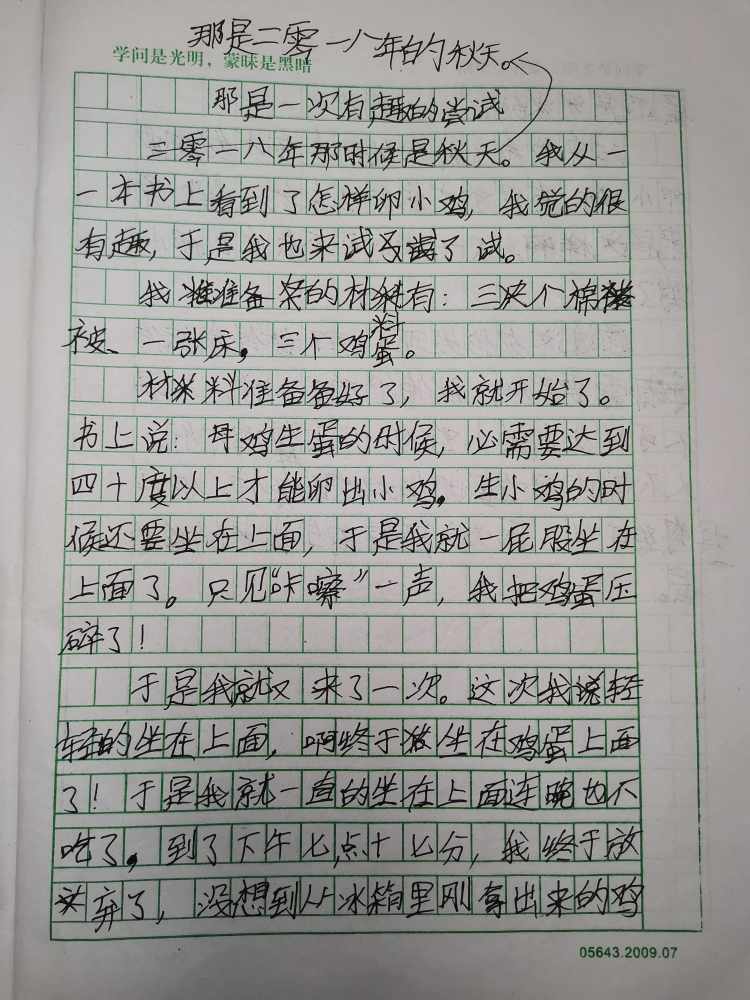 那是二零一八年的秋天。
学问是光明，蒙昧是黑暗
那是一次有趣的尝试
二零一八年那时候是秋天。我从一
一本书上看到了怎样卵小鸡，我觉的很
有趣，于是我也来试尝了试。
我准备的材料有：三个棉
被、一张床，三个鸡蛋。
材料准备备好了，我就开始了。
书上说：母鸡生蛋的时候，必需要达到
四十度以上才能卵出小鸡，生小鸡的时
候还要坐在上面，于是我就一屁股坐在
上面了。只见“咔嚓”一声，我把鸡蛋压
碎了！
于是我就又来了一次。这次我轻
轻的坐在上面，啊终于坐在鸡蛋上面
了！于是我就一直的坐在上面连晚也不
吃了，到了下午七点十七分，我终于放
弃了，没想到从冰箱里刚拿出来的鸡
05643.2009.07